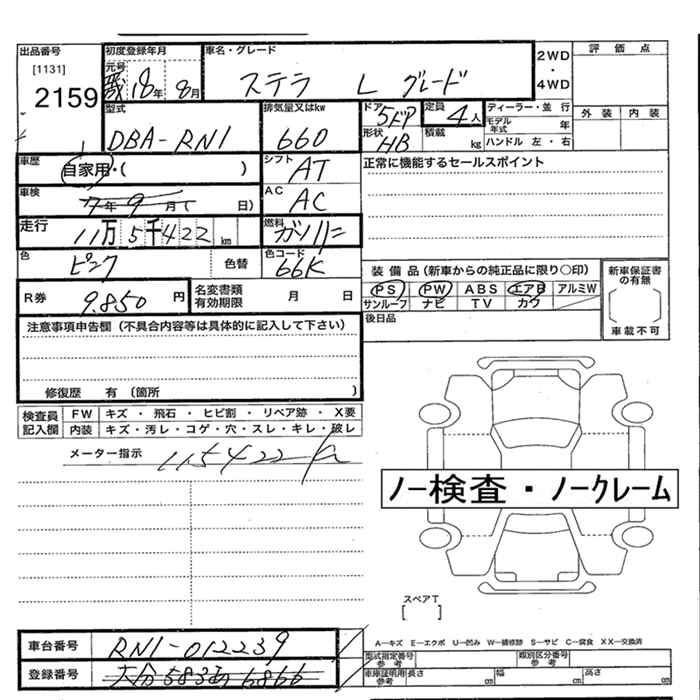 出品番号
[1131]
2159
初度登録年月
元号
18年 8月
車名・グレード
ステラ L グレード
2WD
・
4WD
評価点
外装 内装
型式
DBA-RN1
排気量又はkw
660
ドア
5ドア
形状
HB
定員
4人
積載
kg
ディーラー・並行
モデル年式 年
ハンドル 左・右
車歴
自家用・( )
シフト
AT
正常に機能するセールスポイント
車検
7年 9月( 日)
AC
AC
走行
11万5千422km
燃料
ガソリン
色
ピンク
色替
色コード
66K
装備品(新車からの純正品に限り○印)
PS PW ABS エアB アルミW
サンルーフ ナビ TV カワ
新車保証書の有無
車載不可
R券
9.850円
名変書類有効期限 月 日
後日品
注意事項申告欄(不具合内容等は具体的に記入して下さい)
修復歴 有(箇所 )
検査員記入欄
FW キズ・飛石・ヒビ割・リペア跡・X要
内装 キズ・汚レ・コゲ・穴・スレ・キレ・破レ
メーター指示 115422
ノー検査・ノークレーム
スペアT
[ ]
車台番号
RN1-012239
登録番号
大分583 6866
A-キズ E-エクボ U-凹み W-補修跡 S-サビ C-腐食 XX-交換済
型式指定番号参考
類別区分番号参考
車庫証明用参考 長さ cm 幅 cm 高さ cm